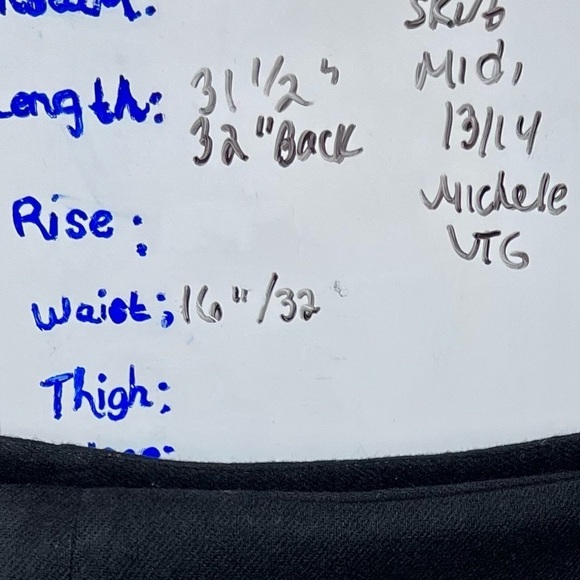 Skirt
Mid,
Length: 31 1/2"
32" Back
13/14
Michele
VTG
Rise:
Waist: 16"/32
Thigh: